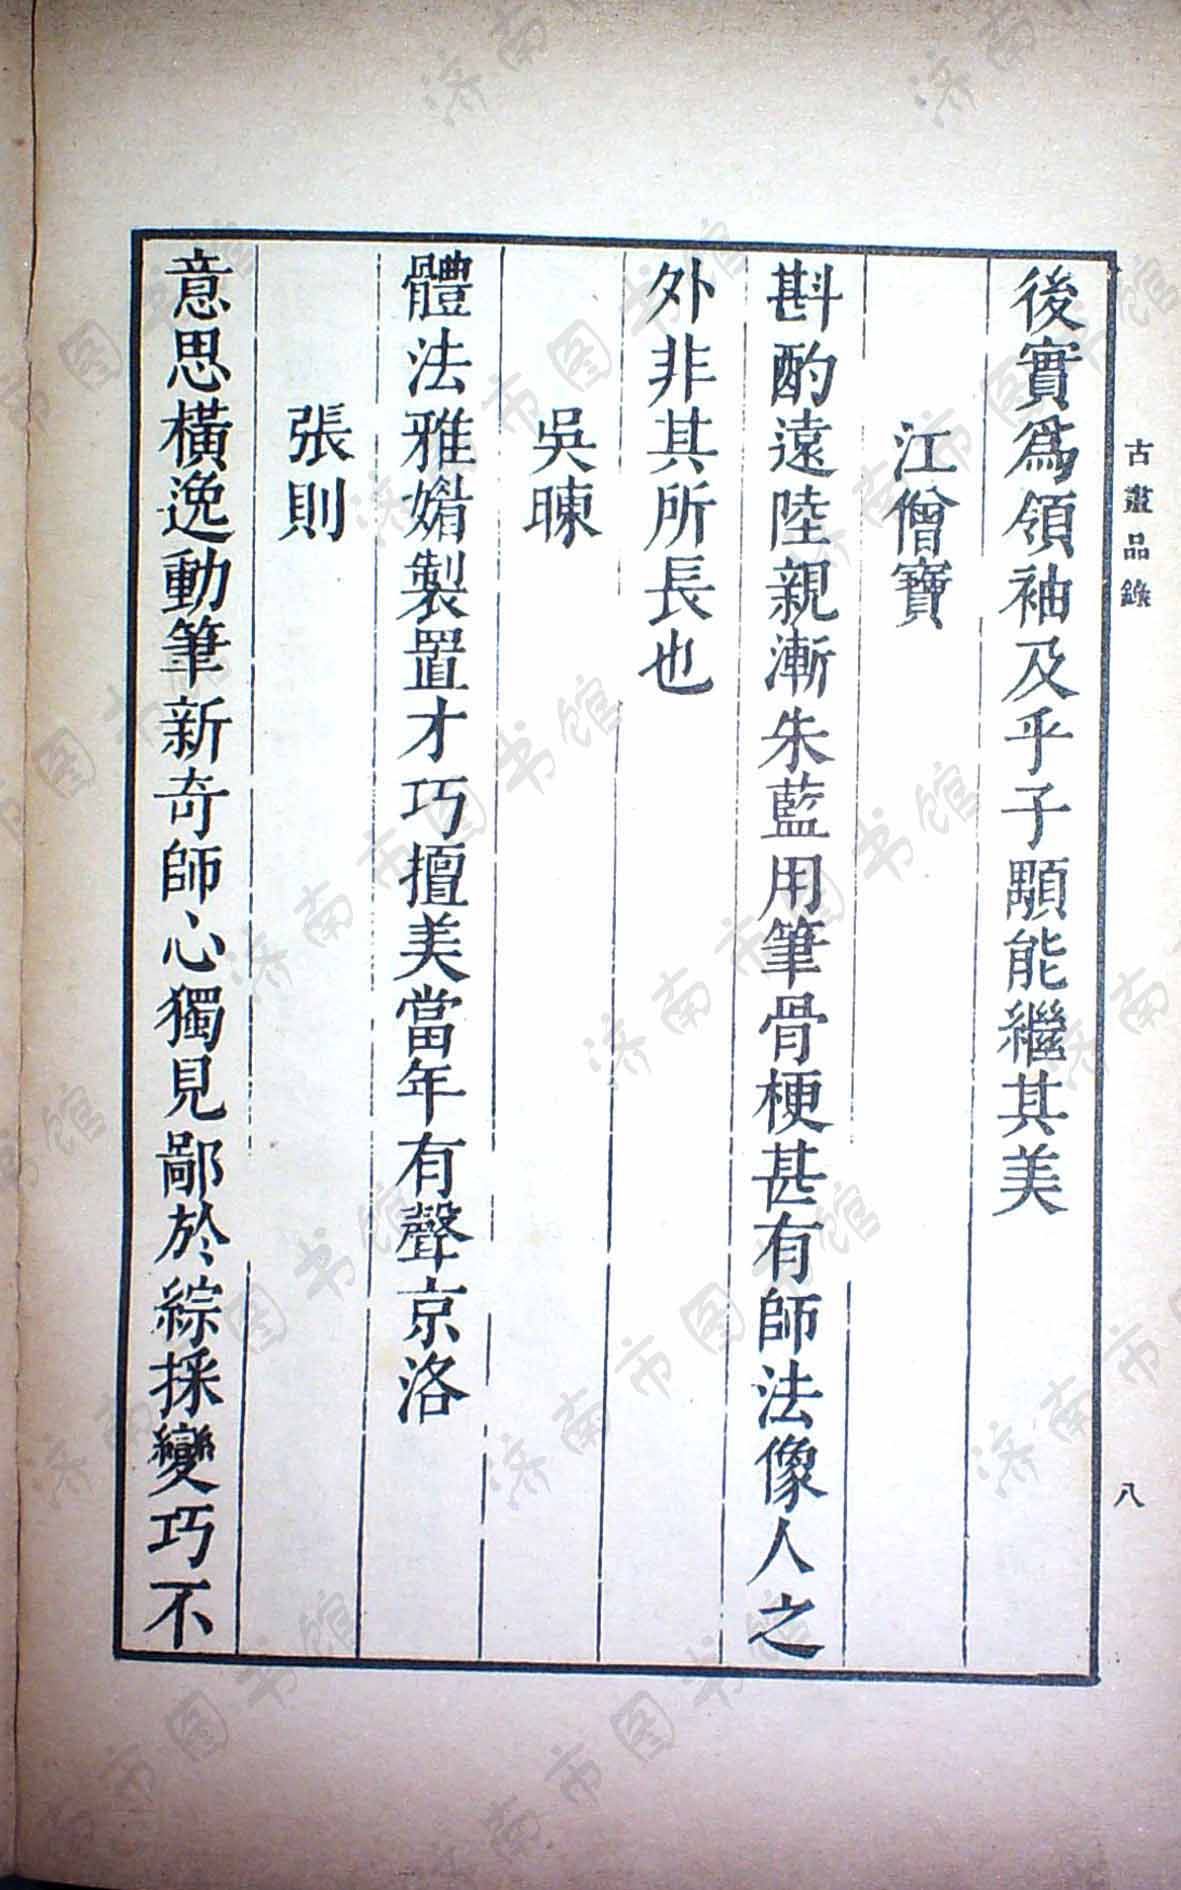 古畫品錄
八
後實爲領袖及乎子顒能繼其美
江僧寶
斟酌遠陸親漸朱藍用筆骨梗甚有師法像人之
外非其所長也
吳暕
體法雅媚製置才巧擅美當年有聲京洛
張則
意思橫逸動筆新奇師心獨見鄙於綜採變巧不
济南市图书馆